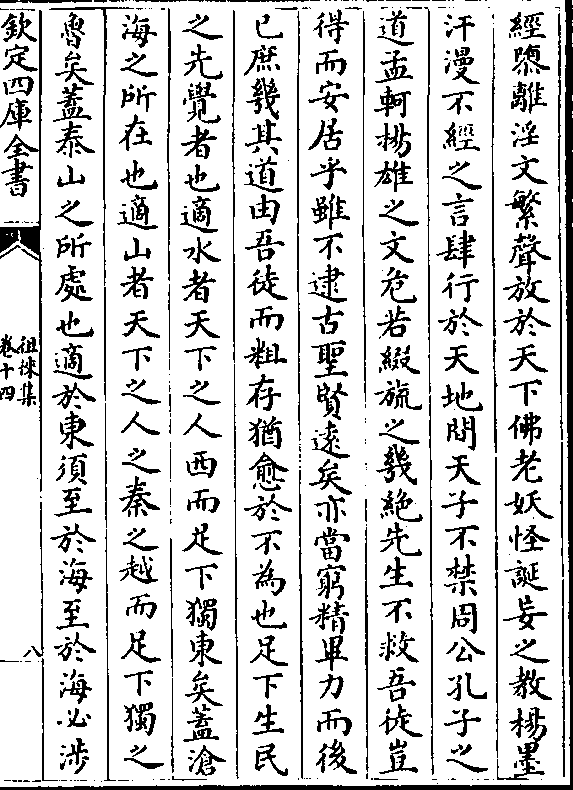 經隳離淫文繁聲放於天下佛老妖怪誕妄之教楊墨
汗漫不經之言肆行於天地間天子不禁周公孔子之
道孟軻楊雄之文危若綴旒之幾絶先生不救吾徒豈
得而安居乎雖不逮古聖賢遠矣亦當窮精畢力而後
已庶幾其道由吾徒而粗存猶愈於不為也足下生民
之先覺者也適水者天下之人西而足下獨東矣蓋滄
海之所在也適山者天下之人之秦之越而足下獨之
魯矣蓋泰山之所處也適於東須至於海至於海必涉
欽定四庫全書
徂徠集
卷十四
八